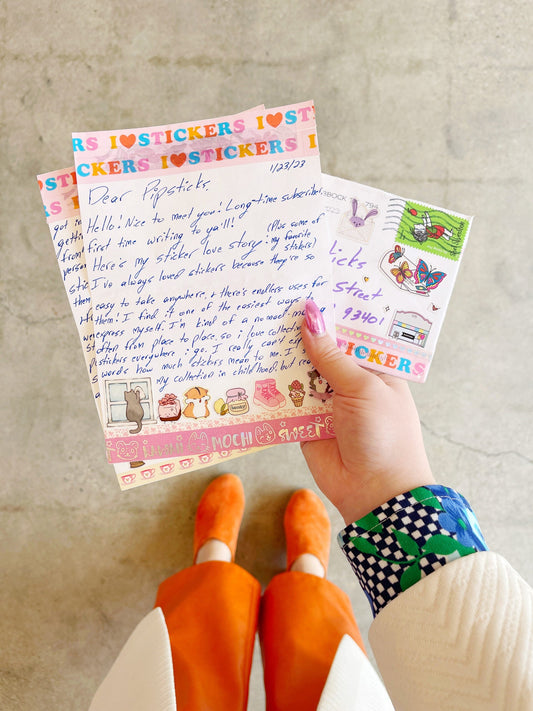 RS I ❤ STICKERS I ❤
CKERS I ❤ STICKERS
1/23/23
Dear Pipsticks,
Hello! Nice to meet you! Long-time subscriber,
first time writing to ya'll!
(Plus some of
my favorite
stickers)
Here's my sticker love story:
I've always loved stickers because they're so
easy to take anywhere, & there's endless uses for
them! I find it one of the easiest ways to
express myself. I'm kind of a nomad moving
often from place to place, so i love collecting
stickers everywhere i go. I really can't
words how much stickers mean to me. I
my collection in childhood, but
MOCHI SWEET
ST
got in
getting
from
person
stic
them
BOCK
794
licks
Street
93401
STICKERS